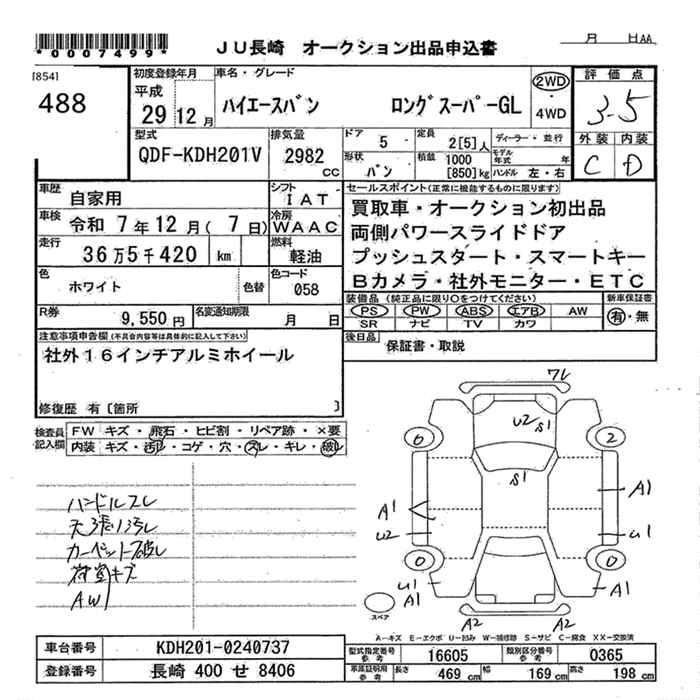 *0007499*
JU長崎 オークション出品申込書
月 日AA
[854]
488
初度登録年月
平成
29年12月
車名・グレード
ハイエースバン ロングスーパーGL
2WD
・
4WD
評価点
3.5
外装 内装
C D
型式
QDF-KDH201V
排気量
2982
cc
ドア
5
定員
2[5]人
ディーラー・並行
形状
バン
積載
1000
[850]kg
モデル年式 年
ハンドル 左・右
車歴
自家用
シフト
IAT
車検
令和 7年12月( 7日)
冷房
WAAC
走行
36万5千420 km
燃料
軽油
色
ホワイト
色替
色コード
058
R券
9,550円
名変通知期限
月 日
セールスポイント(正常に機能するものに限ります)
買取車・オークション初出品
両側パワースライドドア
プッシュスタート・スマートキー
Bカメラ・社外モニター・ETC
装備品(純正品に限り○をつけてください)
新車保証書
PS PW ABS エアB AW
SR ナビ TV カワ
有・無
後日品
保証書・取説
注意事項申告欄(不具合内容等は具体的に記入して下さい)
社外16インチアルミホイール
修復歴 有[箇所 ]
検査員記入欄
FW キズ・飛石・ヒビ割・リペア跡・×要
内装 キズ・汚レ・コゲ・穴・スレ・キレ・破レ
ハンドルスレ
天張リ汚レ
カーペット破レ
荷室キズ
AW
ワレ
U2 S1
6
2
S1
A1
A1
U2
U1
0
0
U1
A1
A1
スペア
A2 A2
A-キズ E-エクボ U-凹み W-補修跡 S-サビ C-腐食 XX-交換済
車台番号
KDH201-0240737
登録番号
長崎 400 せ 8406
型式指定番号
参考
16605
類別区分番号
参考
0365
車庫証明用
参考
長さ
469cm
幅
169cm
高さ
198cm